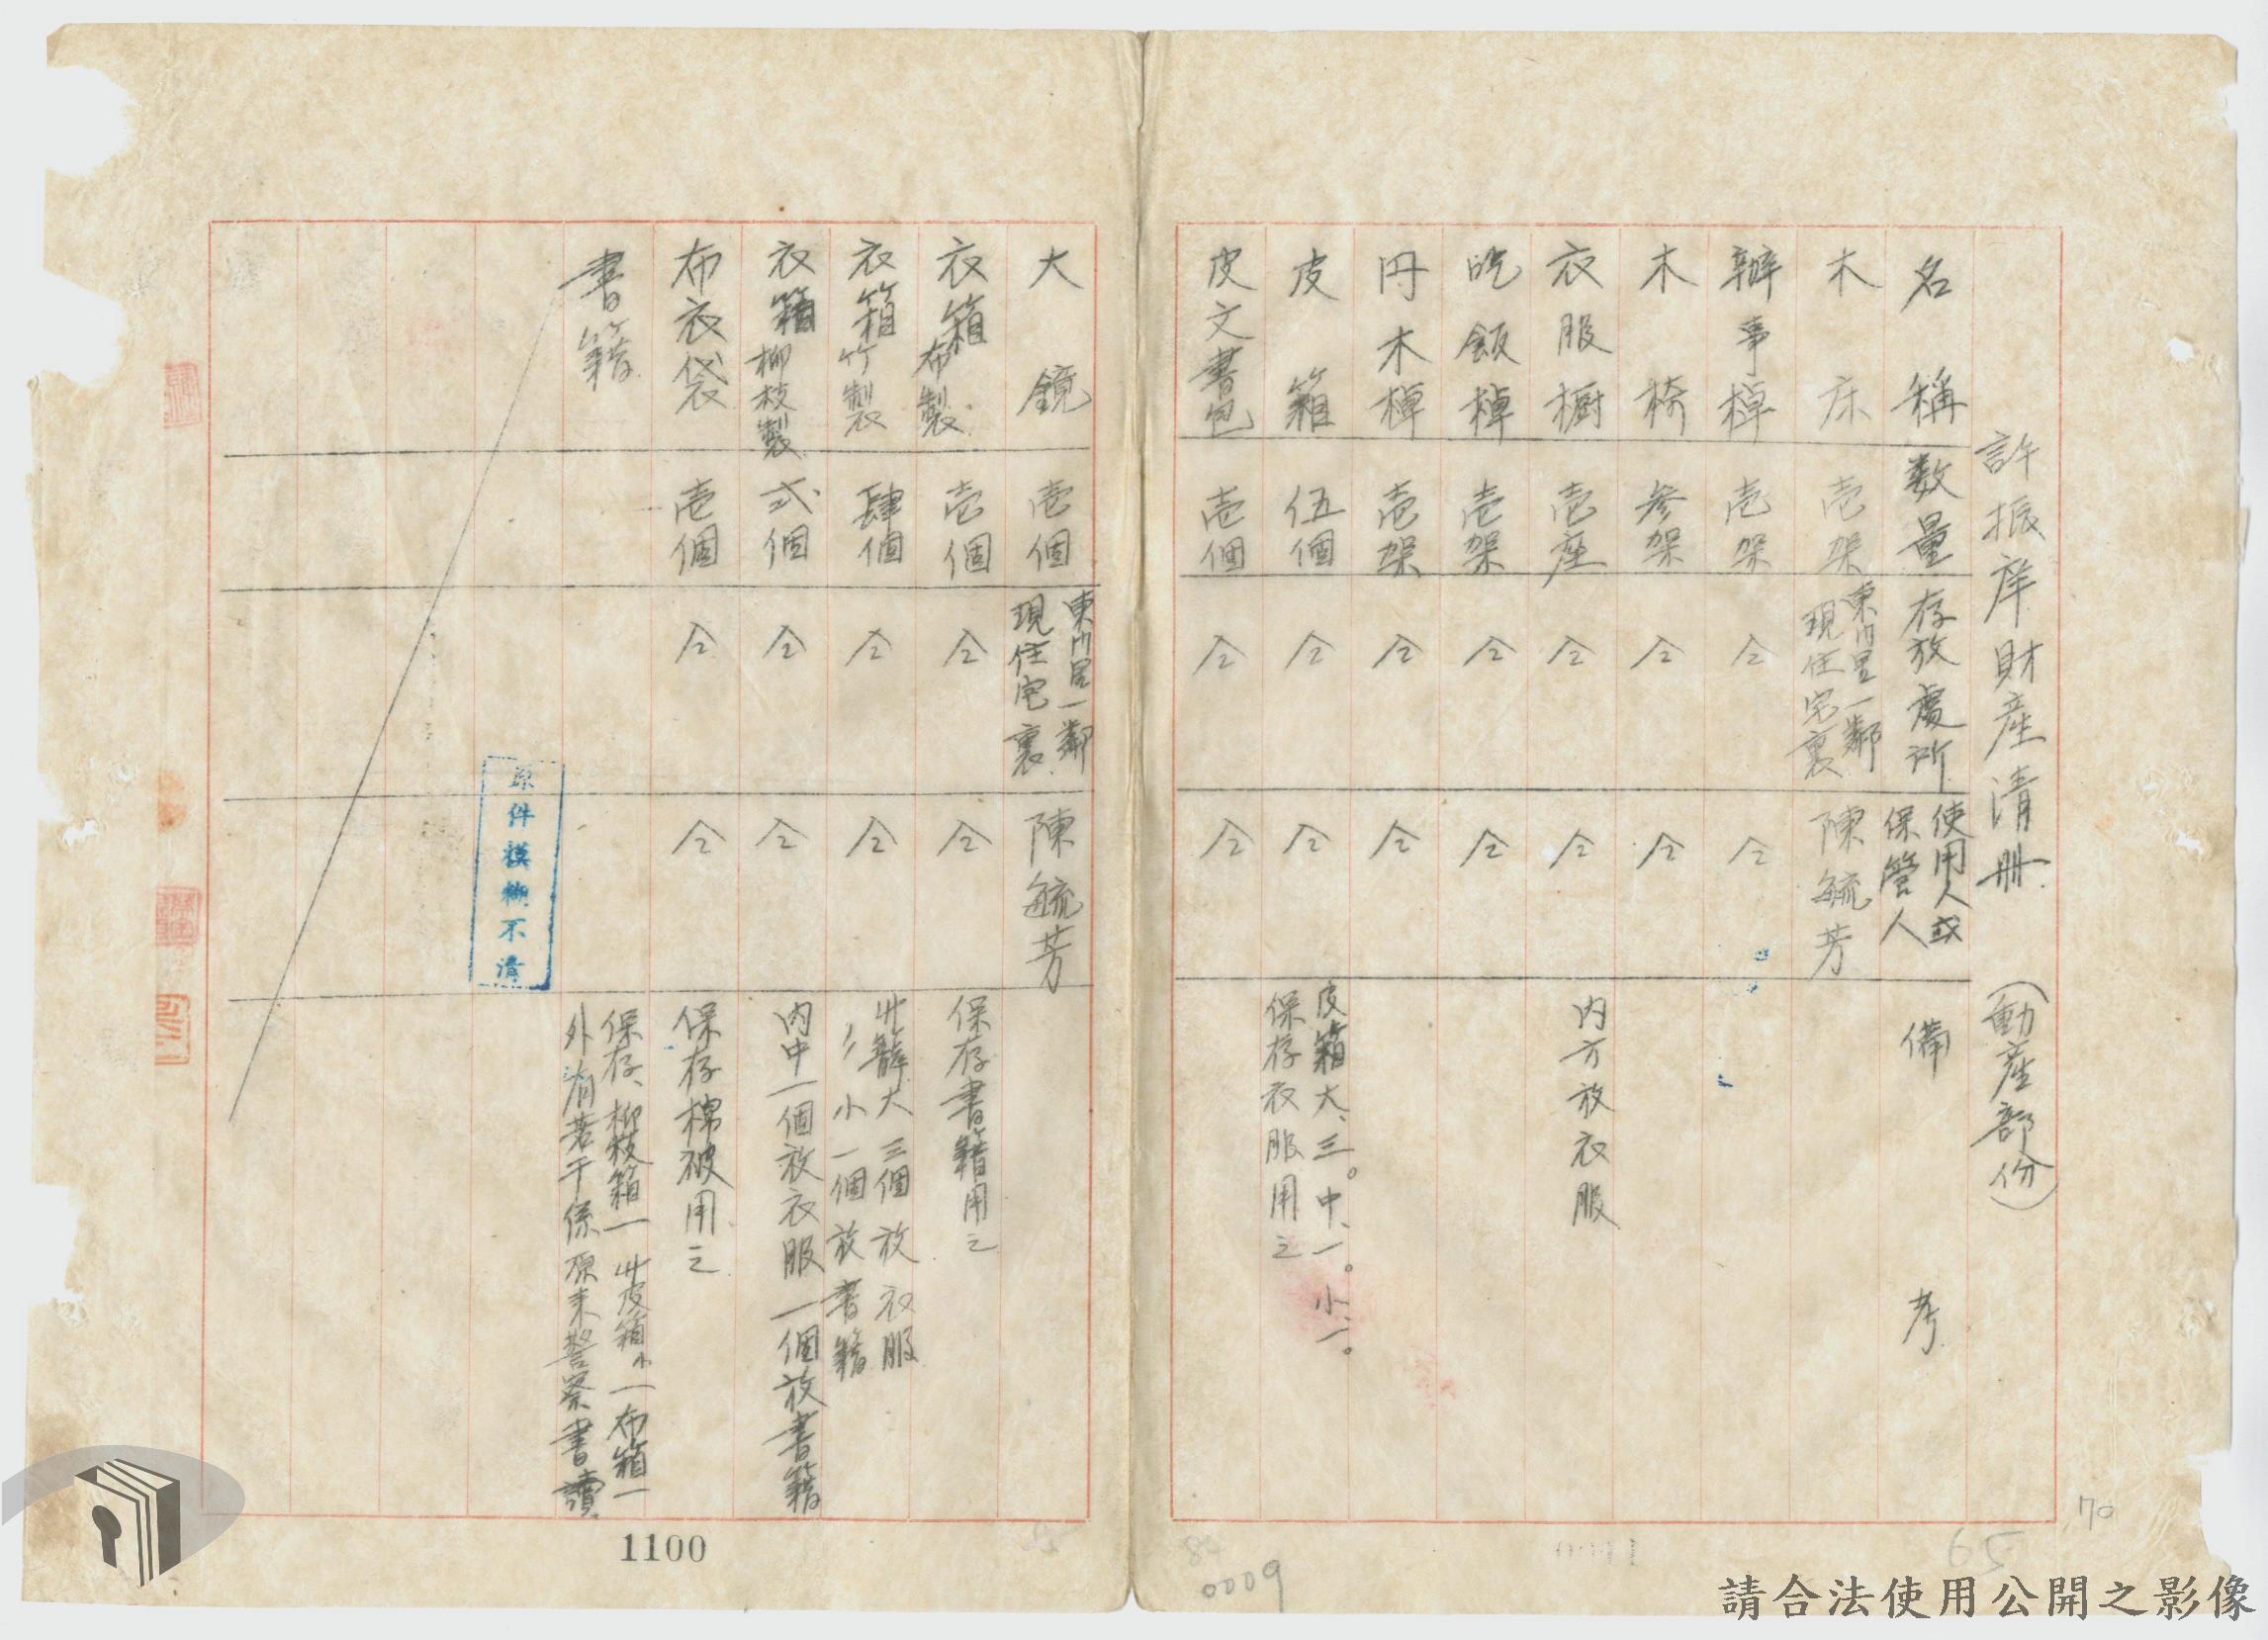 許振庠財產清册 (動產部份)
名稱 数量 存放處所 使用人或保管人 備考
木床 壱架 東門里一鄰現住宅裏 陳毓芳
辦事棹 壱架 仝 仝
木椅 参架 仝 仝
衣服橱 壱座 仝 仝 内方放衣服
吃飯棹 壱架 仝 仝
円木棹 壱架 仝 仝
皮箱 伍個 仝 仝 皮箱大、三。中、一。小、一。保存衣服用之
皮文書包 壱個 仝 仝
大鏡 壱個 東門里一鄰現住宅裏 陳毓芳
衣箱布製 壱個 仝 仝 保存書籍用之
衣箱竹製 肆個 仝 仝 大三個放衣服 〃小一個放書籍
衣箱柳枝製 弍個 仝 仝 内中一個放衣服一個放書籍
布衣袋 壱個 仝 仝 保存棉被用之
書籍 保存、柳枝箱一 皮箱小一布箱一外有若干係原来警察書讀
原件模糊不清
1100
84
0009
65
70
請合法使用公開之影像